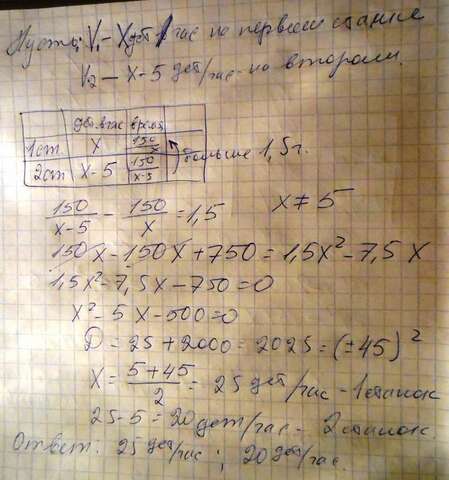 Пусть V₁ - X дет/час на первом станке
V₂ - X-5 дет/час - на втором.
дет.в час время
1ст. X 150/x
2ст X-5 150/x-5 больше 1,5г.
150/x-5 - 150/x = 1,5 X ≠ 5
150X - 150X + 750 = 1,5X² - 7,5X
1,5X² - 7,5X - 750 = 0
X² - 5X - 500 = 0
D = 25 + 2000 = 2025 = (±45)²
X = 5+45/2 = 25 дет/час - 1 станок
25-5 = 20 дет/час - 2 станок.
Ответ: 25 дет/час ; 20 дет/час.